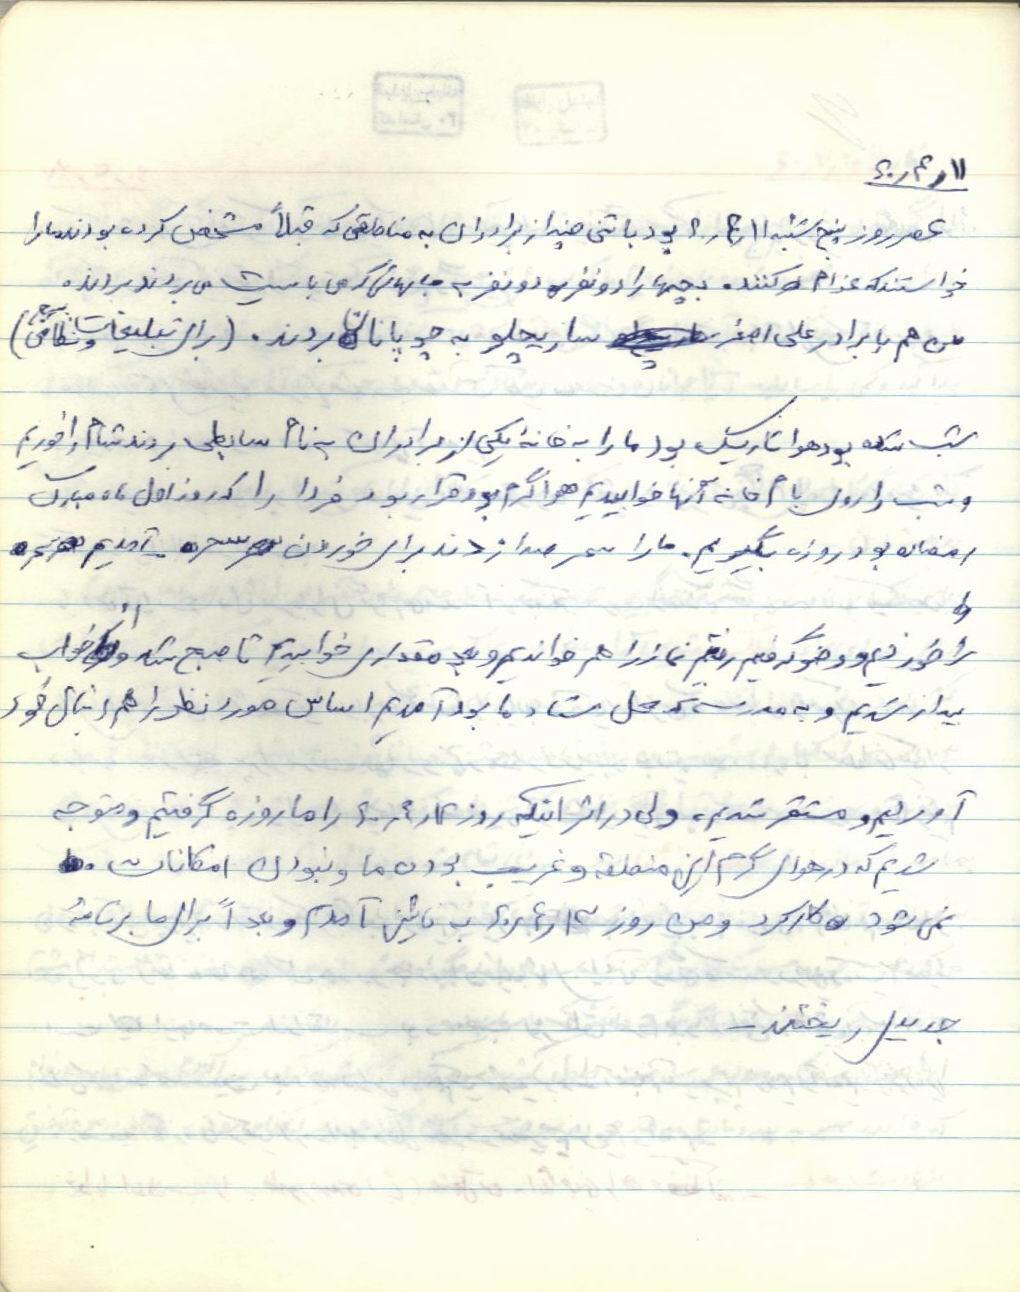 ۱۱ر۴ر۶۰
عصر روز پنج شنبه ۱۱ر۴ر۶۰ بود با تنی چند از برادران به مناطقی که قبلاً مشخص کرده بودند ما را
خواستند که اعزام کنند. بچه‌ها را دو نفر دو نفر به جاهائی که می بایست می بردند بردند.
من هم با برادر علی اصغر ساریچلو به چوپانان بردند. (برای تبلیغات و نظامی)
شب شده بود هوا تاریک بود ما را به خانهٔ یکی از برادران به نام بردند شام را خوردیم
و شب را روی بام خانه آنها خوابیدیم هوا گرم بود قرار بود فردا را که روز اول ماه مبارک
رمضان بود روزه بگیریم. ما را سحر صدا زدند برای خوردن سحری آمدیم سحری
را خوردیم و وضو گرفتیم رفتیم نماز را هم خواندیم و بعد مقداری خوابیدیم تا صبح شد و از خواب
بیدار شدیم و به مدرسه که محل ستاد ما بود آمدیم اساس مورد نظر را هم دنبال خود
آوردیم و مستقر شدیم. ولی در اثر اینکه روز ۱۲ر۴ر۶۰ را ما روزه گرفتیم و متوجه
شدیم که در هوای گرم این منطقه و غریب بودن ما و نبودن امکانات
نمی شود کار کرد و من روز ۱۳ر۴ر۶۰ به نائین آمدم و بعداً برای ما برنامهٔ
جدیدی ریختند -